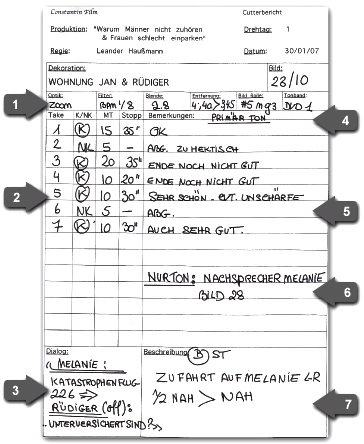 Constantin Film Cutterbericht
Produktion: "Warum Männer nicht zuhören Drehtag: 1
& Frauen schlecht einparken"
Regie: Leander Haußmann Datum: 30/01/07
Dekoration: Bild:
WOHNUNG JAN & RÜDIGER 28/10
Optik: Filter: Blende: Entfernung: Bild Rolle: Tonband:
Zoom 1/8 2.8 #5 DVD 1
1
PRIMÄR TON
4
Take K/NK MT Sek Bemerkungen:
1 K 15 35" OK
2 NK 5 – ABG. ZU HEKTISCH
3 K 20 35" ENDE NOCH NICHT GUT
4 K 10 20" ENDE NOCH NICHT GUT
2
5 K 10 30" SEHR SCHÖN - EVT. UNSCHÄRFE
6 NK 5 – ABG.
5
7 K 10 30" AUCH SEHR GUT.
NURTON: NACHSPRECHER MELANIE
BILD 28
6
Dialog: Beschreibung: B ST
" MELANIE:
KATASTROPHENFLUG
3
226 =>
RÜDIGER (off):
UNTERVERSICHERT SIND?"
ZUFAHRT AUF MELANIE LR
1/2 NAH > NAH
7